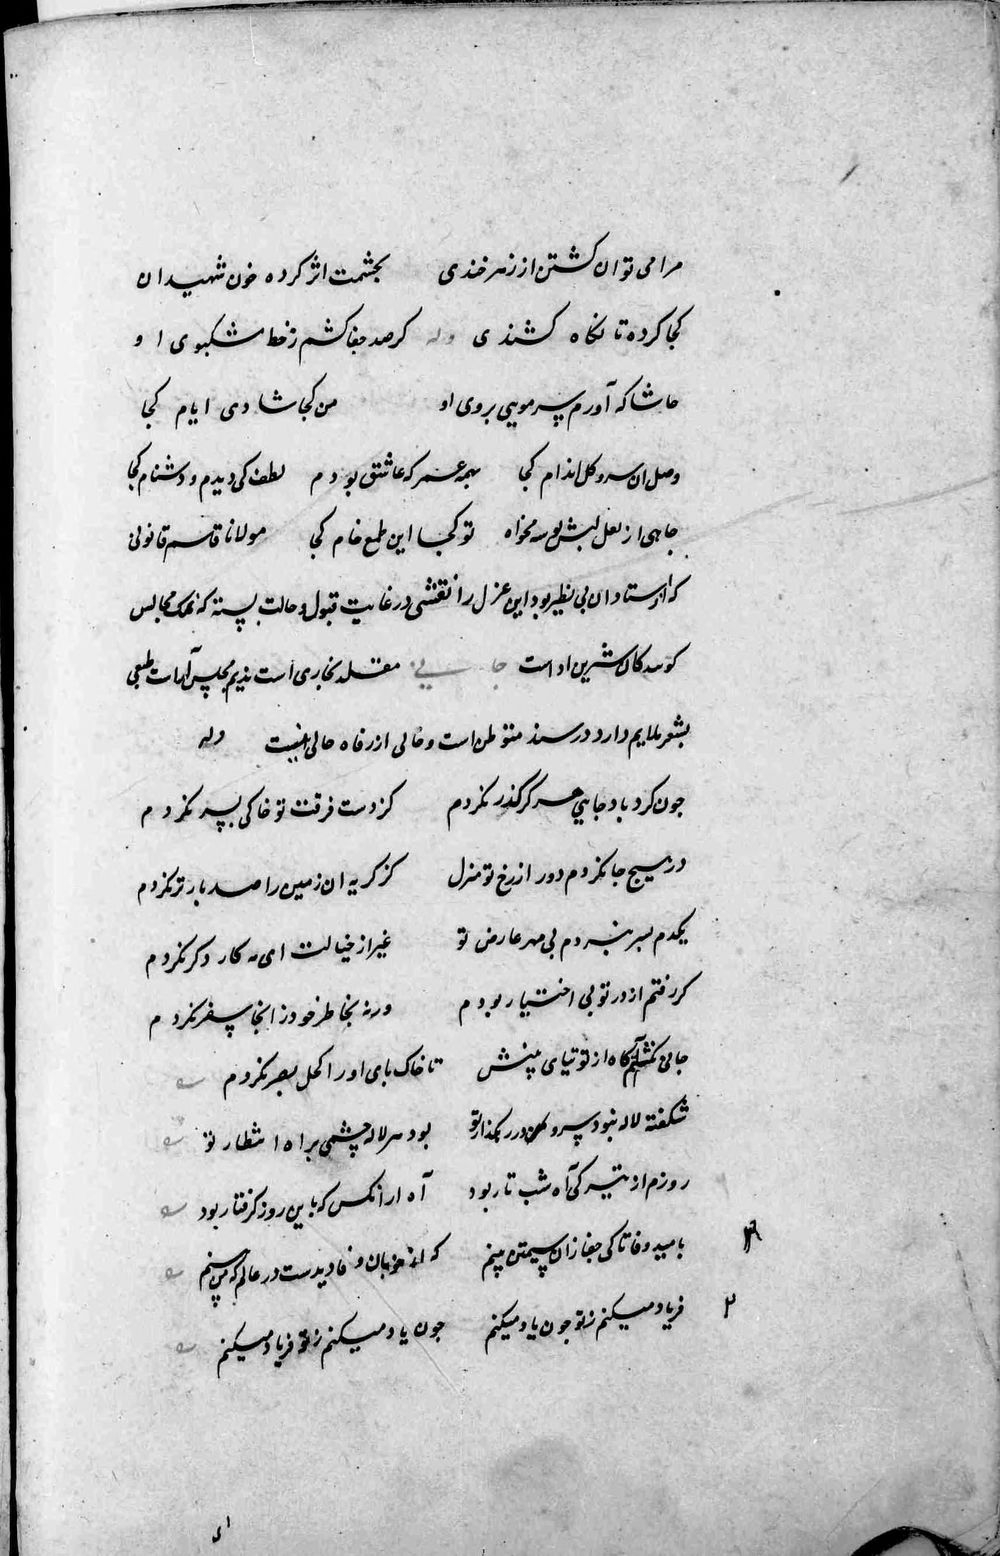 مرا می توان کشتن از زهر خندی بچشمت اثر کرده خون شهیدان
کجا کرده تا نکاه کشندی وله کر صد جفا کشم ز خط مشکبوی او
حاشا که آورم سر مویی بروی او من کجا شادی ایام کجا
وصل ان سرو کل اندام کجا همه عمر که عاشق بودم لطف کی دیدم و دشنام کجا
جاهی از لعل لبش بوسه مخواه تو کجا این طمع خام کجا مولانا قاسم قانونی
که از استادان بی نظیر بود این غزل را نقشی در غایت قبول و حالت بسته که مجالس
شیرین ادا است مقلد بخاری است ندیم مجلس طبعی
بشعر ملایم دارد در سند متوطن است و خالی از رفاه حالی نیست وله
جون کرد باد جایی هرکز کذر نکردم کز دست فرقت تو خاکی بسر نکردم
در هیچ جا نکردم دور از رخ تو منزل کز کریه ان زمین را صد بار تر نکردم
یکدم بسر نبردم بی مهر عارض تو غیر از خیالت ای مه کار دکر نکردم
کر رفتم از در تو بی اختیار بودم ورنه بخاطر خود زانجا سفر نکردم
از توتیای بینش تا خاک پای او را کحل بصر نکردم
شکفته لاله نبود در رهکذار تو بود هر لاله چشمی براه انتظار تو
روزم از تیرکی آه شب تار بود آه از انکس که باین روز کرفتار بود
بامید وفا تا کی جفا زان سیمتن بینم که از خوبان وفا دیدست در عالم که من بینم
۲ فریاد میکنم ز تو جون یاد میکنم جون یاد میکنم ز تو فریاد میکنم